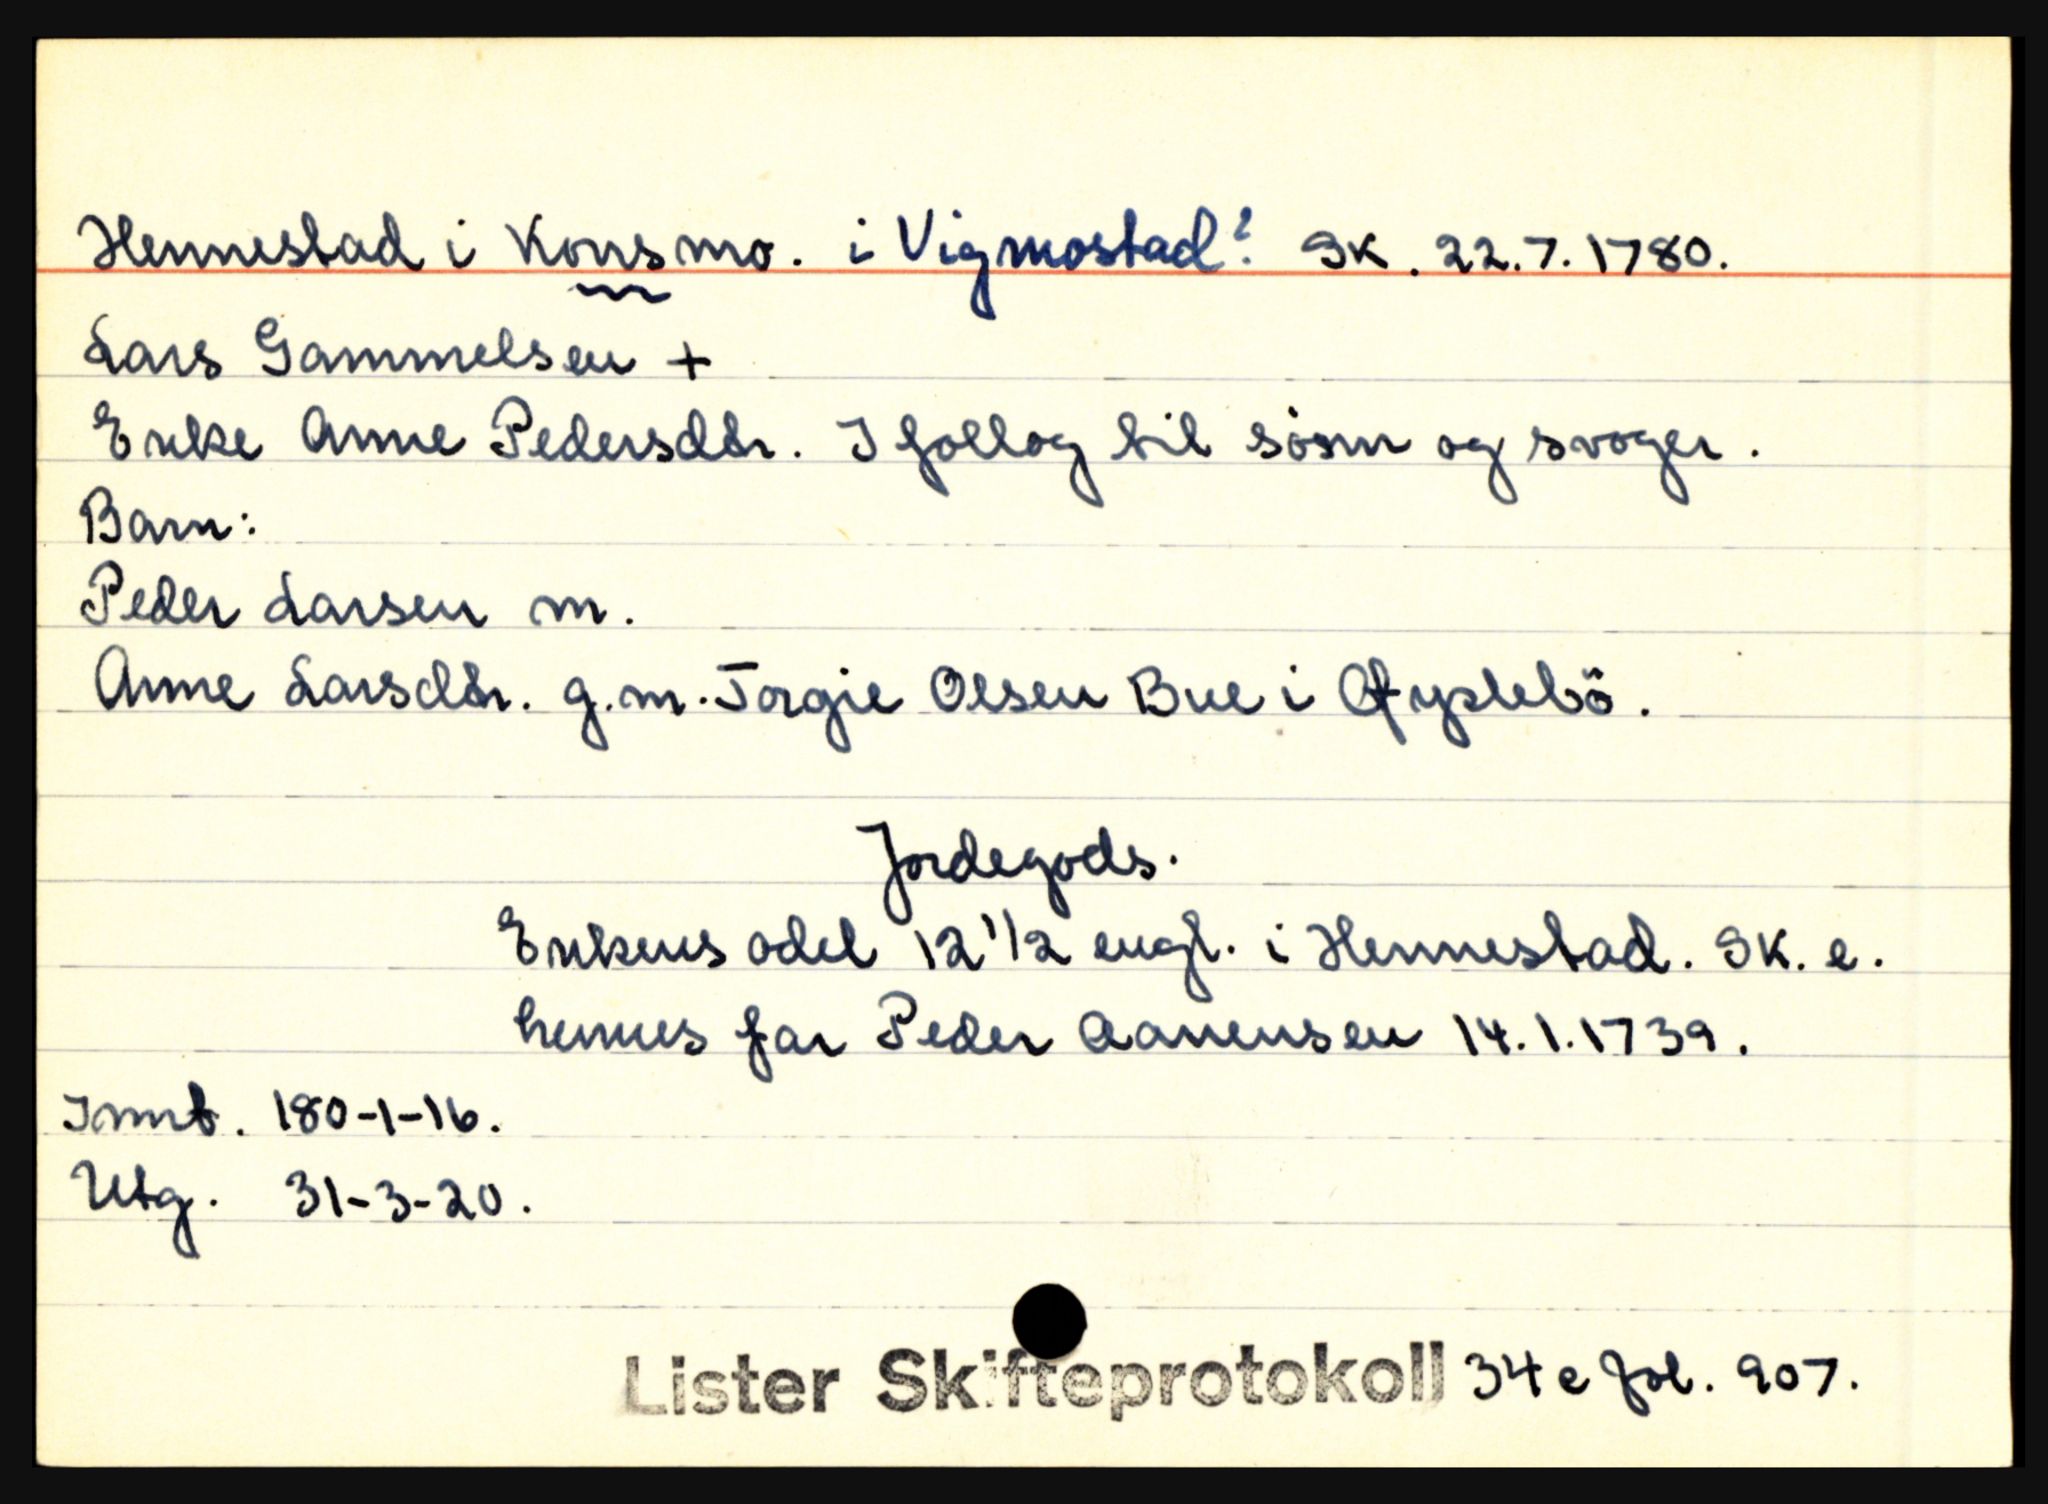 Hennestad i Konsmo. i Vigmostad? SK. 22.7.1780.
Lars Gammelsen +
Enke Anne Pedersdtr. I follog til sösnn og svoger.
Barn:
Peder Larsen m.
Anne Larsdtr. g.m. Torgie Olsen Bue i Øfyslebö.
Jordegods.
Enkens odel 12 1/2 engl. i Hennestad. SK. e.
hennes far Peder Aanensen 14.1.1739.
Innt. 180-1-16.
Utg. 31-3-20.
Lister Skifteprotokoll 34 e fol. 907.